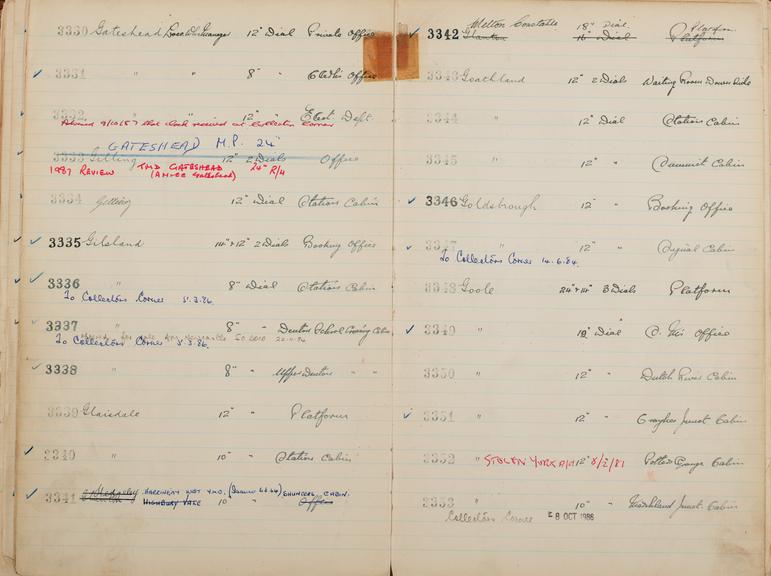 3330 Gateshead Locoml. Manager 12" Dial Private Office
3331 " " 8" " Clerks' Office
3332 " 12" " Elect. Dept.
Advised 9/10/57 that clock received at Collectors Corner
GATESHEAD M.P. 24"
3333 Gilling 12" 2 Dials Office
1987 REVIEW TMD GATESHEAD 24" R/4
(AM+EE Gateshead)
3334 Gilling 12" Dial Station Cabin
3335 Gilsland 14"+12" 2 Dials Booking Office
3336 " 8" Dial Station Cabin
To Collectors Corner 5.3.86.
3337 " 8" " Denton School Crossing Cabin
To Collectors Corner 5.3.86.
3338 " 8" " Upper Denton " "
3339 Glaisdale 12" " Platform
3340 " 10" " Station Cabin
3341 HARRINGAY WEST YARD SHUNTERS CABIN.
HIGHBURY VALE 10" Office
Melton Constable 18" Dial Platform
3342 Glanton 16" Dial Platform
3343 Goathland 12" 2 Dials Waiting Room Down Side
3344 " 12" Dial Station Cabin
3345 " 12" " Summit Cabin
3346 Goldsbrough 12" " Booking Office
3347 " 12" " Signal Cabin
To Collectors Corner 14.6.84.
3348 Goole 24"+14" 3 Dials Platform
3349 " 12" Dial Office
3350 " 12" " Dutch River Cabin
3351 " 12" " Junct. Cabin
3352 " STOLEN YORK 12" 8/2/81 Potters Grange Cabin
3353 " 10" " Marshland Junct. Cabin
Collectors Corner 28 OCT 1986